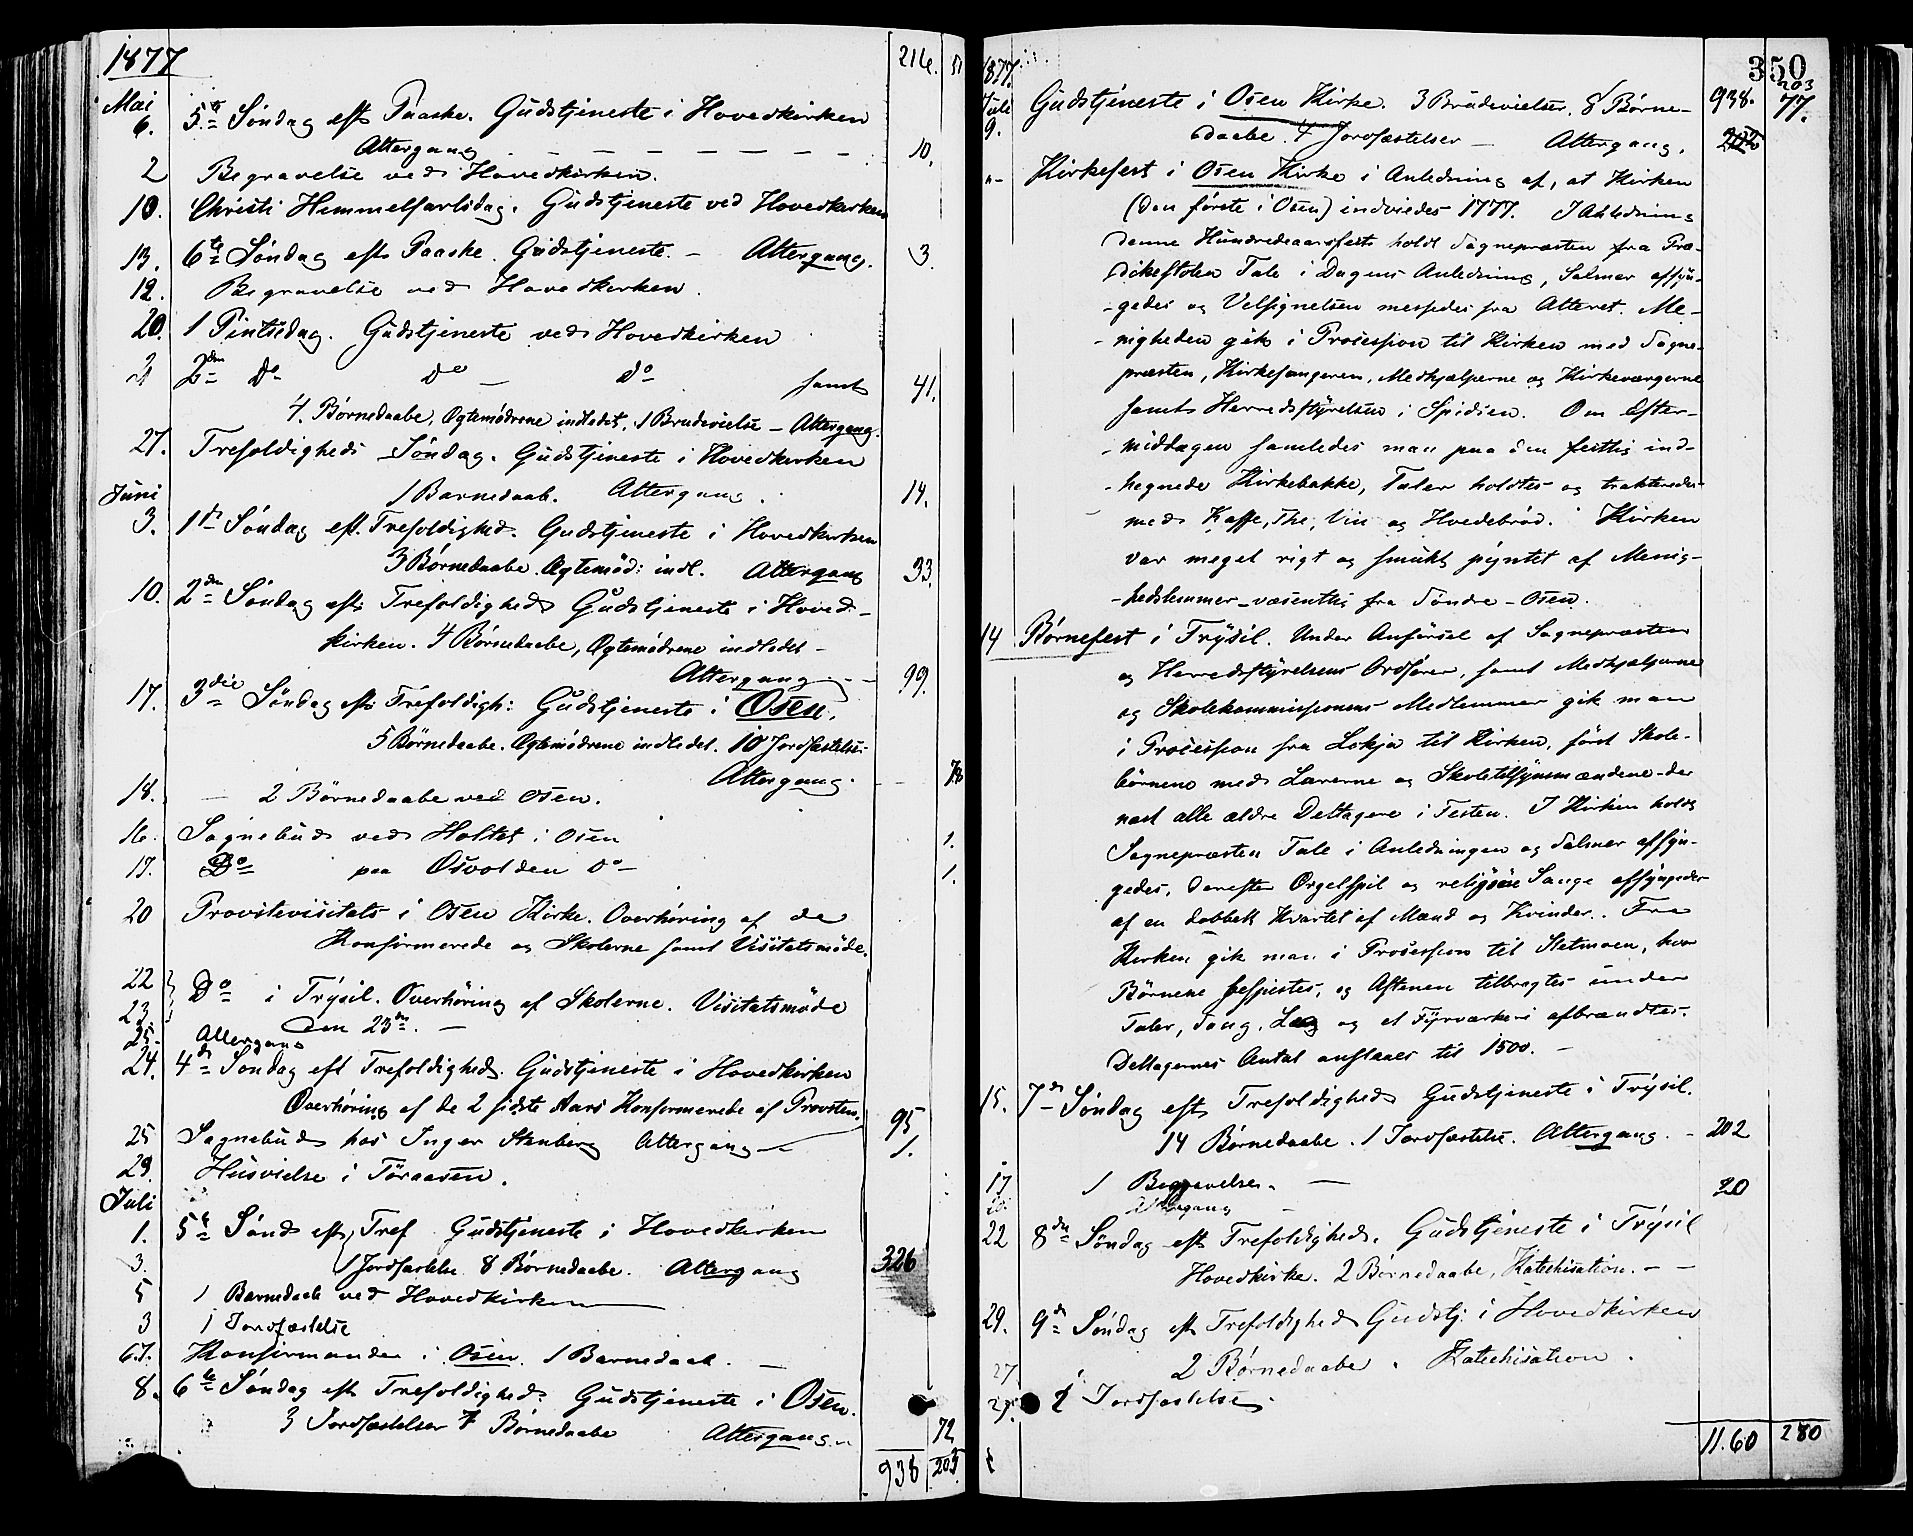 1877 216. 51
Mai
6. 5te Søndag eft Paaske. Gudstjeneste i Hovedkirken
Altergang — — — — — — — 10.
2 Begravelse ved Hovedkirken.
10. Christi Himmelfartsdag. Gudstjeneste ved Hovedkirken
13. 6te Søndag eft Paaske. Gudstjeneste. – Altergang. 3.
12. Begravelse ved Hovedkirken.
20. 1 Pintsdag. Gudstjeneste ved Hovedkirken
21 2den Do Do — Do samt 41.
4. Børnedaabe, Ægtemødrene indledet. 1 Brudevielse – Altergang.
27. Trefoldigheds Søndag. Gudstjeneste i Hovedkirken
Juni 1 Barnedaab. Altergang. 14.
3. 1te Søndag eft. Trefoldighed. Gudstjeneste i Hovedkirken
3 Børnedaabe. Ægtemød: indl. Altergang 33.
10. 2den Søndag eft Trefoldighed Gudstjeneste i Hoved-
kirken. 4 Børnedaabe, Ægtemødrene indledet –
Altergang – – 99.
17. 3die Søndag eft Trefoldigh: Gudstjeneste i Osen.
5 Børnedaabe. Ægtemødrene indledet. 10 Jordfæstelser
Altergang. — 78
18. — 2 Børnedaabe ved Osen.
16. Sognebud ved Holtet i Osen 1.
17. Do paa Osvolden Do – 1.
20 Provstevisitats i Osen Kirke. Overhøring af de
Konfirmerede og Skolerne samt Visitatsmøde.
22
23 Do i Trysil. Overhøring af Skolerne. Visitatsmøde
den 23de. —
25. Altergang
24. 4de Søndag eft Trefoldighed. Gudstjeneste i Hovedkirken
Overhøring af de 2 sidste Aars Konfirmerede af Provsten. 95
25 Sognebud hos Inger Stenberg Altergang — 1.
29. Husvielse i Føraasen.
Juli
1. 5te Sønd eft Tref Gudstjeneste i Hovedkirken
3. 1 Jordfæstelse 8 Børnedaabe. Altergang 326
5 1 Barnedaab ved Hovedkirken —
3 1 Jordfæstelse
6.7. Konfirmander i Osen. 1 Barnedaab. —
8. 6te Søndag eft Trefoldighed. Gudstjeneste i Osen.
3 Jordfæstelser 7 Børnedaabe Altergang. 72
938 203
1877. 350
Juli 938. 203
9. Gudstjeneste i Osen Kirke. 3 Brudevielser, 8 Børne- 77.
daabe. 4 Jordfæstelser — Altergang. 202
"– Kirkefest i Osen Kirke i Anledning af, at Kirken
(den første i Osen) indviedes 1777. I Anledning
denne Hundredeaarsfest holdt Sognepræsten fra Præ-
dikestolen Tale i Dagens Anledning, Salmer affyn-
gedes og Velsignelsen messedes fra Alteret. Me-
nigheden gik i Procession til Kirken med Sogne-
præsten, Kirkesangeren, Medhjælperne og Kirkeværgerne
samt Herredsstyrelsen i Spidsen. Om Efter-
middagen samledes man paa den festlig ind-
hegnede Kirkebakke, Taler holdtes og trakteredes
med Kaffe, The, Vin og Hvedebrød. Kirken
var meget rigt og smukt pyntet af Menig-
hedslemmer – væsentlig fra Søndre-Osen.
14 Børnefest i Trysil. Under Anførsel af Sognepræsten
og Herredsstyrelsens Ordfører, samt Medhjælperne
og Skolekommissionens Medlemmer gik man
i Procession fra Lokja til Kirken, først Skole-
børnene med Lærerne og Skoletilsynsmændene – der
næst alle ældre Deltagere i Festen. I Kirken holdt
Sognepræsten Tale i Anledningen og Salmer affyn-
gedes, derefter Orgelspil og religiøse Sange affynges
af en dobbelt Kvartet af Mænd og Kvinder. Fra
Kirken gik man i Procession til Sletmoen, hvor
Børnene bespistes, og Aftenen tilbragtes under
Taler, Sang, Leg og et Fyrværkeri afbrændtes.
Deltagernes Antal anslaaes til 1500. —
15. 7de Søndag eft Trefoldighed Gudstjeneste i Trysil.
14 Børnedaabe. 1 Jordfæstelse. Altergang. – 202
17 1 Begravelse. —
Altergang 20
22 8de Søndag eft Trefoldighed. Gudstjeneste i Trysil
Hovedkirke. 2 Børnedaabe, Katechisation. – –
29. 9de Søndag eft Trefoldighed Gudstj. i Hovedkirken
27. 2 Børnedaabe. Katechisation.
27. 2 Jordfæstelse
11.60 280